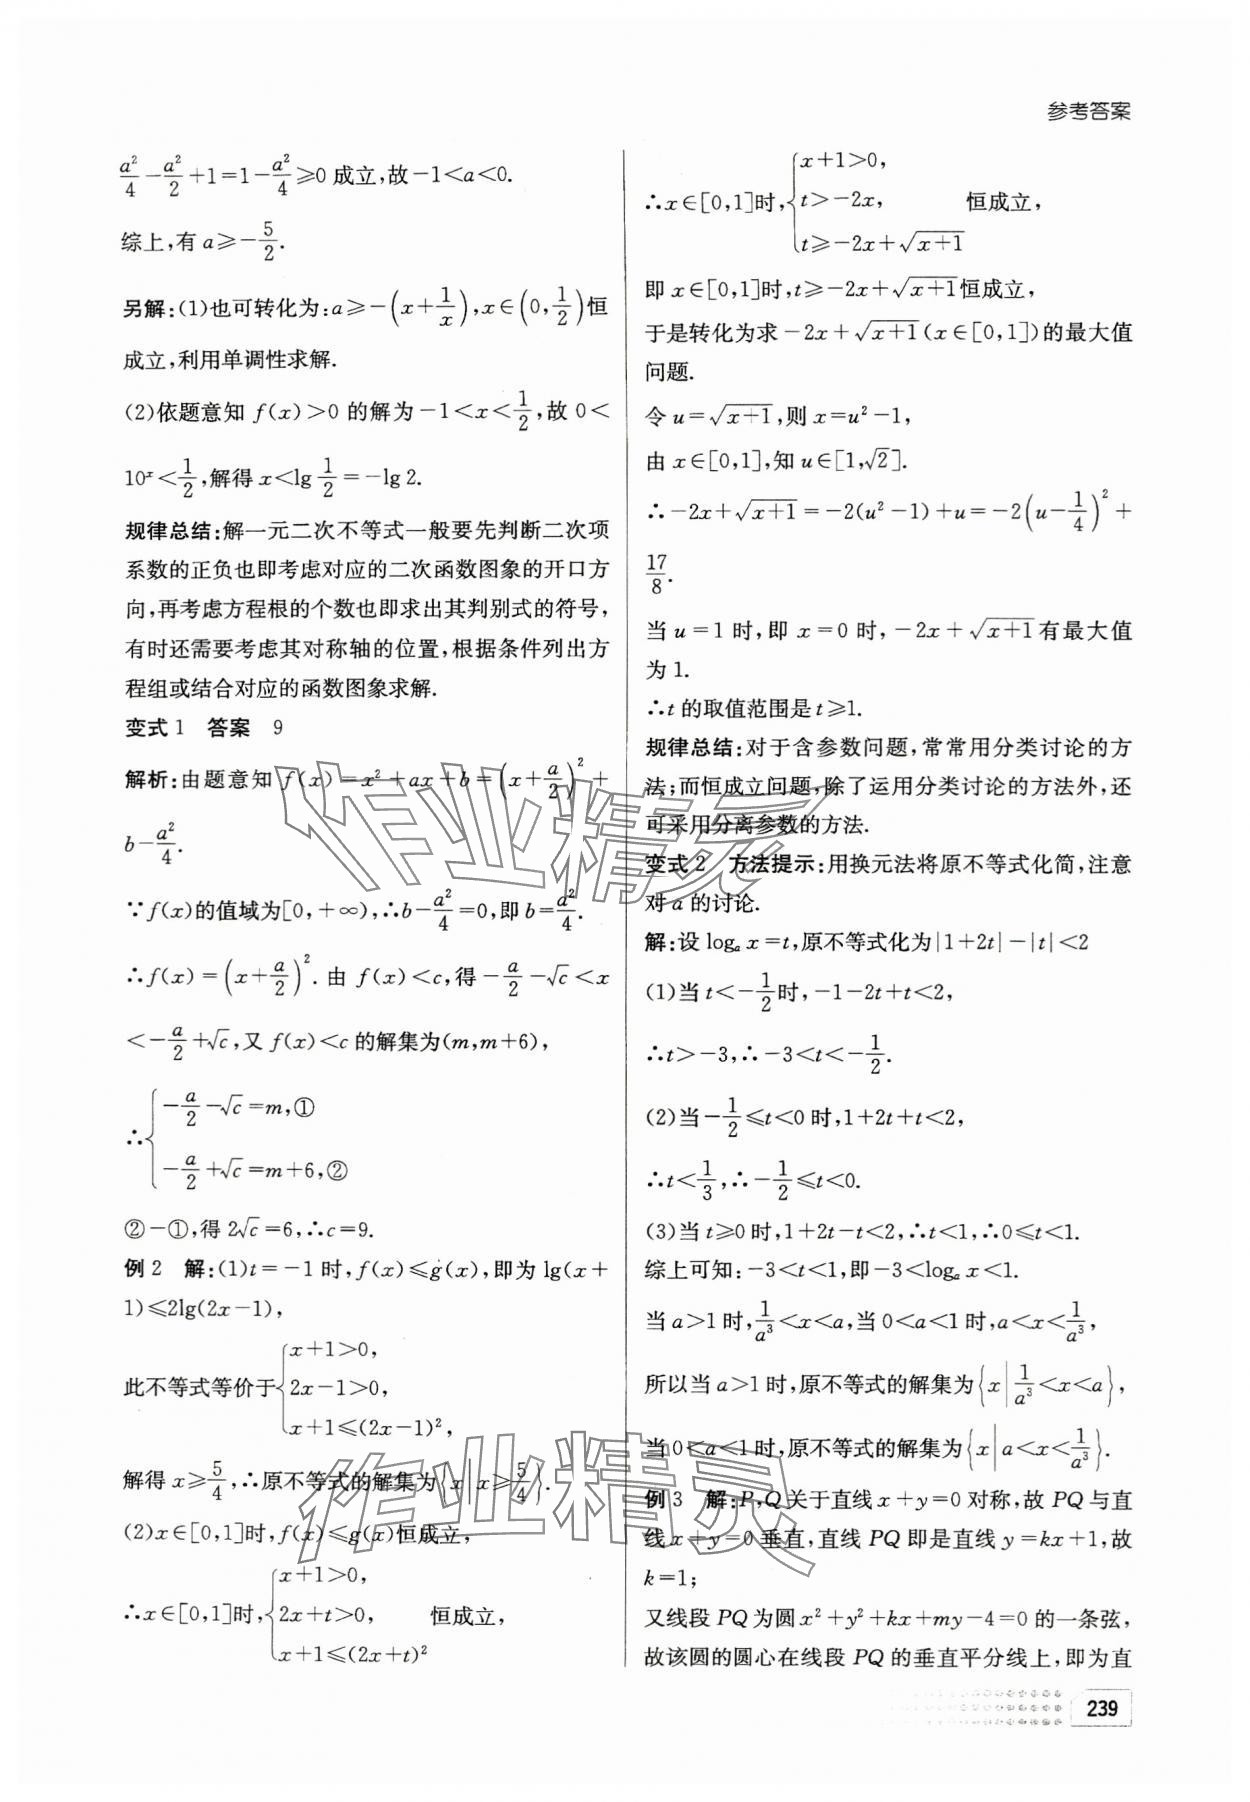 参考答案
a²/4－a²/2＋1＝1－a²/4≥0 成立,故－1＜a＜0.
综上,有 a≥－5/2.
另解:(1)也可转化为:a≥－(x＋1/x),x∈(0,1/2)恒
成立,利用单调性求解.
(2)依题意知 f(x)＞0 的解为－1＜x＜1/2,故 0＜
10ˣ＜1/2,解得 x＜lg 1/2＝－lg 2.
规律总结:解一元二次不等式一般要先判断二次项
系数的正负也即考虑对应的二次函数图象的开口方
向,再考虑方程根的个数也即求出其判别式的符号,
有时还需要考虑其对称轴的位置,根据条件列出方
程组或结合对应的函数图象求解.
变式 1 答案 9
解析:由题意知 f(x)＝x²＋ax＋b＝(x＋a/2)²＋
b－a²/4.
∵f(x)的值域为[0,＋∞),∴b－a²/4＝0,即 b＝a²/4.
∴f(x)＝(x＋a/2)².由 f(x)＜c,得－a/2－√c＜x
＜－a/2＋√c,又 f(x)＜c 的解集为(m,m＋6),
－a/2－√c＝m,①
∴{
－a/2＋√c＝m＋6,②
②－①,得 2√c＝6,∴c＝9.
例 2 解:(1)t＝－1 时,f(x)≤g(x),即为 lg(x＋
1)≤2lg(2x－1),
x＋1＞0,
此不等式等价于{2x－1＞0,
x＋1≤(2x－1)²,
解得 x≥5/4,∴原不等式的解集为{x|x≥5/4}.
(2)x∈[0,1]时,f(x)≤g(x)恒成立,
x＋1＞0,
∴x∈[0,1]时,{2x＋t＞0, 恒成立,
x＋1≤(2x＋t)²
x＋1＞0,
∴x∈[0,1]时,{t＞－2x, 恒成立,
t≥－2x＋√(x＋1)
即 x∈[0,1]时,t≥－2x＋√(x＋1)恒成立,
于是转化为求－2x＋√(x＋1)(x∈[0,1])的最大值
问题.
令 u＝√(x＋1),则 x＝u²－1,
由 x∈[0,1],知 u∈[1,√2].
∴－2x＋√(x＋1)＝－2(u²－1)＋u＝－2(u－1/4)²＋
17/8.
当 u＝1 时,即 x＝0 时,－2x＋√(x＋1)有最大值
为 1.
∴t 的取值范围是 t≥1.
规律总结:对于含参数问题,常常用分类讨论的方
法;而恒成立问题,除了运用分类讨论的方法外,还
可采用分离参数的方法.
变式 2 方法提示:用换元法将原不等式化简,注意
对 a 的讨论.
解:设 logₐ x＝t,原不等式化为|1＋2t|－|t|＜2
(1)当 t＜－1/2时,－1－2t＋t＜2,
∴t＞－3,∴－3＜t＜－1/2.
(2)当－1/2≤t＜0 时,1＋2t＋t＜2,
∴t＜1/3,∴－1/2≤t＜0.
(3)当 t≥0 时,1＋2t－t＜2,∴t＜1,∴0≤t＜1.
综上可知:－3＜t＜1,即－3＜logₐ x＜1.
当 a＞1 时,1/a³＜x＜a,当 0＜a＜1 时,a＜x＜1/a³,
所以当 a＞1 时,原不等式的解集为{x|1/a³＜x＜a},
当 0＜a＜1 时,原不等式的解集为{x|a＜x＜1/a³}.
例 3 解:P,Q 关于直线 x＋y＝0 对称,故 PQ 与直
线 x＋y＝0 垂直,直线 PQ 即是直线 y＝kx＋1,故
k＝1;
又线段 PQ 为圆 x²＋y²＋kx＋my－4＝0 的一条弦,
故该圆的圆心在线段 PQ 的垂直平分线上,即为直
239
作业精灵
作业精灵